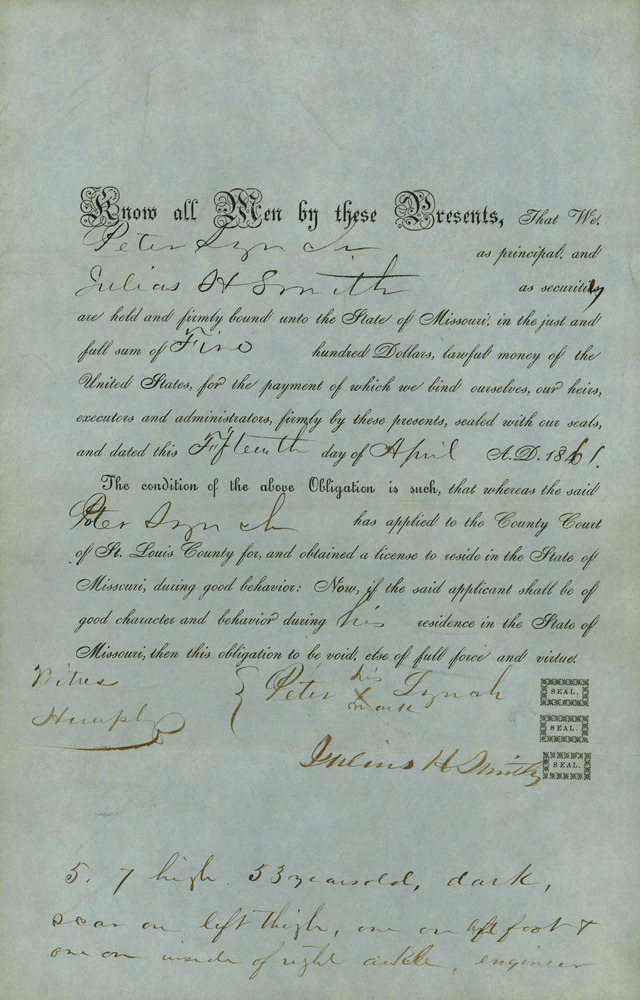 Know all Men by these Presents, That We,
Peter Lynch as principal, and
Julius H Smith as security
are held and firmly bound unto the State of Missouri, in the just and
full sum of Five hundred Dollars, lawful money of the
United States, for the payment of which we bind ourselves, our heirs,
executors and administrators, firmly by these presents, sealed with our seals,
and dated this Fifteenth day of April A.D. 1861.
The condition of the above Obligation is such, that whereas the said
Peter Lynch has applied to the County Court
of St. Louis County for, and obtained a license to reside in the State of
Missouri, during good behavior: Now, if the said applicant shall be of
good character and behavior during his residence in the State of
Missouri, then this obligation to be void, else of full force and virtue.
Witnes { Peter his X mark Lynch SEAL.
SEAL.
Julius H Smith SEAL.
5. 7 high. 53 years old, dark,
scar on left thigh, one on left foot &
one on inside of right ankle, engineer